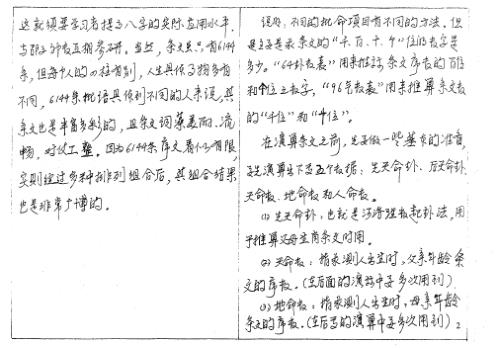 这就须要学习者提高八字的实际应用水平
与 互相参研。当然，条文虽只有6144
条，但每个人的四柱有别，人生具体事物多有
不同，6144条批语具体到不同的人来说，其
条文也是丰富多彩的，且条文词藻美丽、流
畅，对仗工整。因为6144条序文看似有限，
实则经过多种排列组合后，其组合结果
也是非常广博的。
不同的批命项目有不同的方法。但
是 条文的“千、百、十、个”位的数字是
多少。“64卦数表”用来推 条文序数的百位
和个位之数字，“96克数表”用来推算条文数
的“千位”和“十位”。
在演算条文之前，先要做一些基本的准备，
要先演算出下面五个数据：先天命卦、后天命卦、
天命数、地命数和人命数。
(1) 先天命卦：也就是河洛理数起卦法，用
于推算父母生肖条文时用。
(2) 天命数：指求测人出生时，父亲年龄条
文的序数。(在后面的演算中要多次用到)
(3) 地命数：指求测人出生时，母亲年龄
条文的序数。(在后面的演算中要多次用到)
2